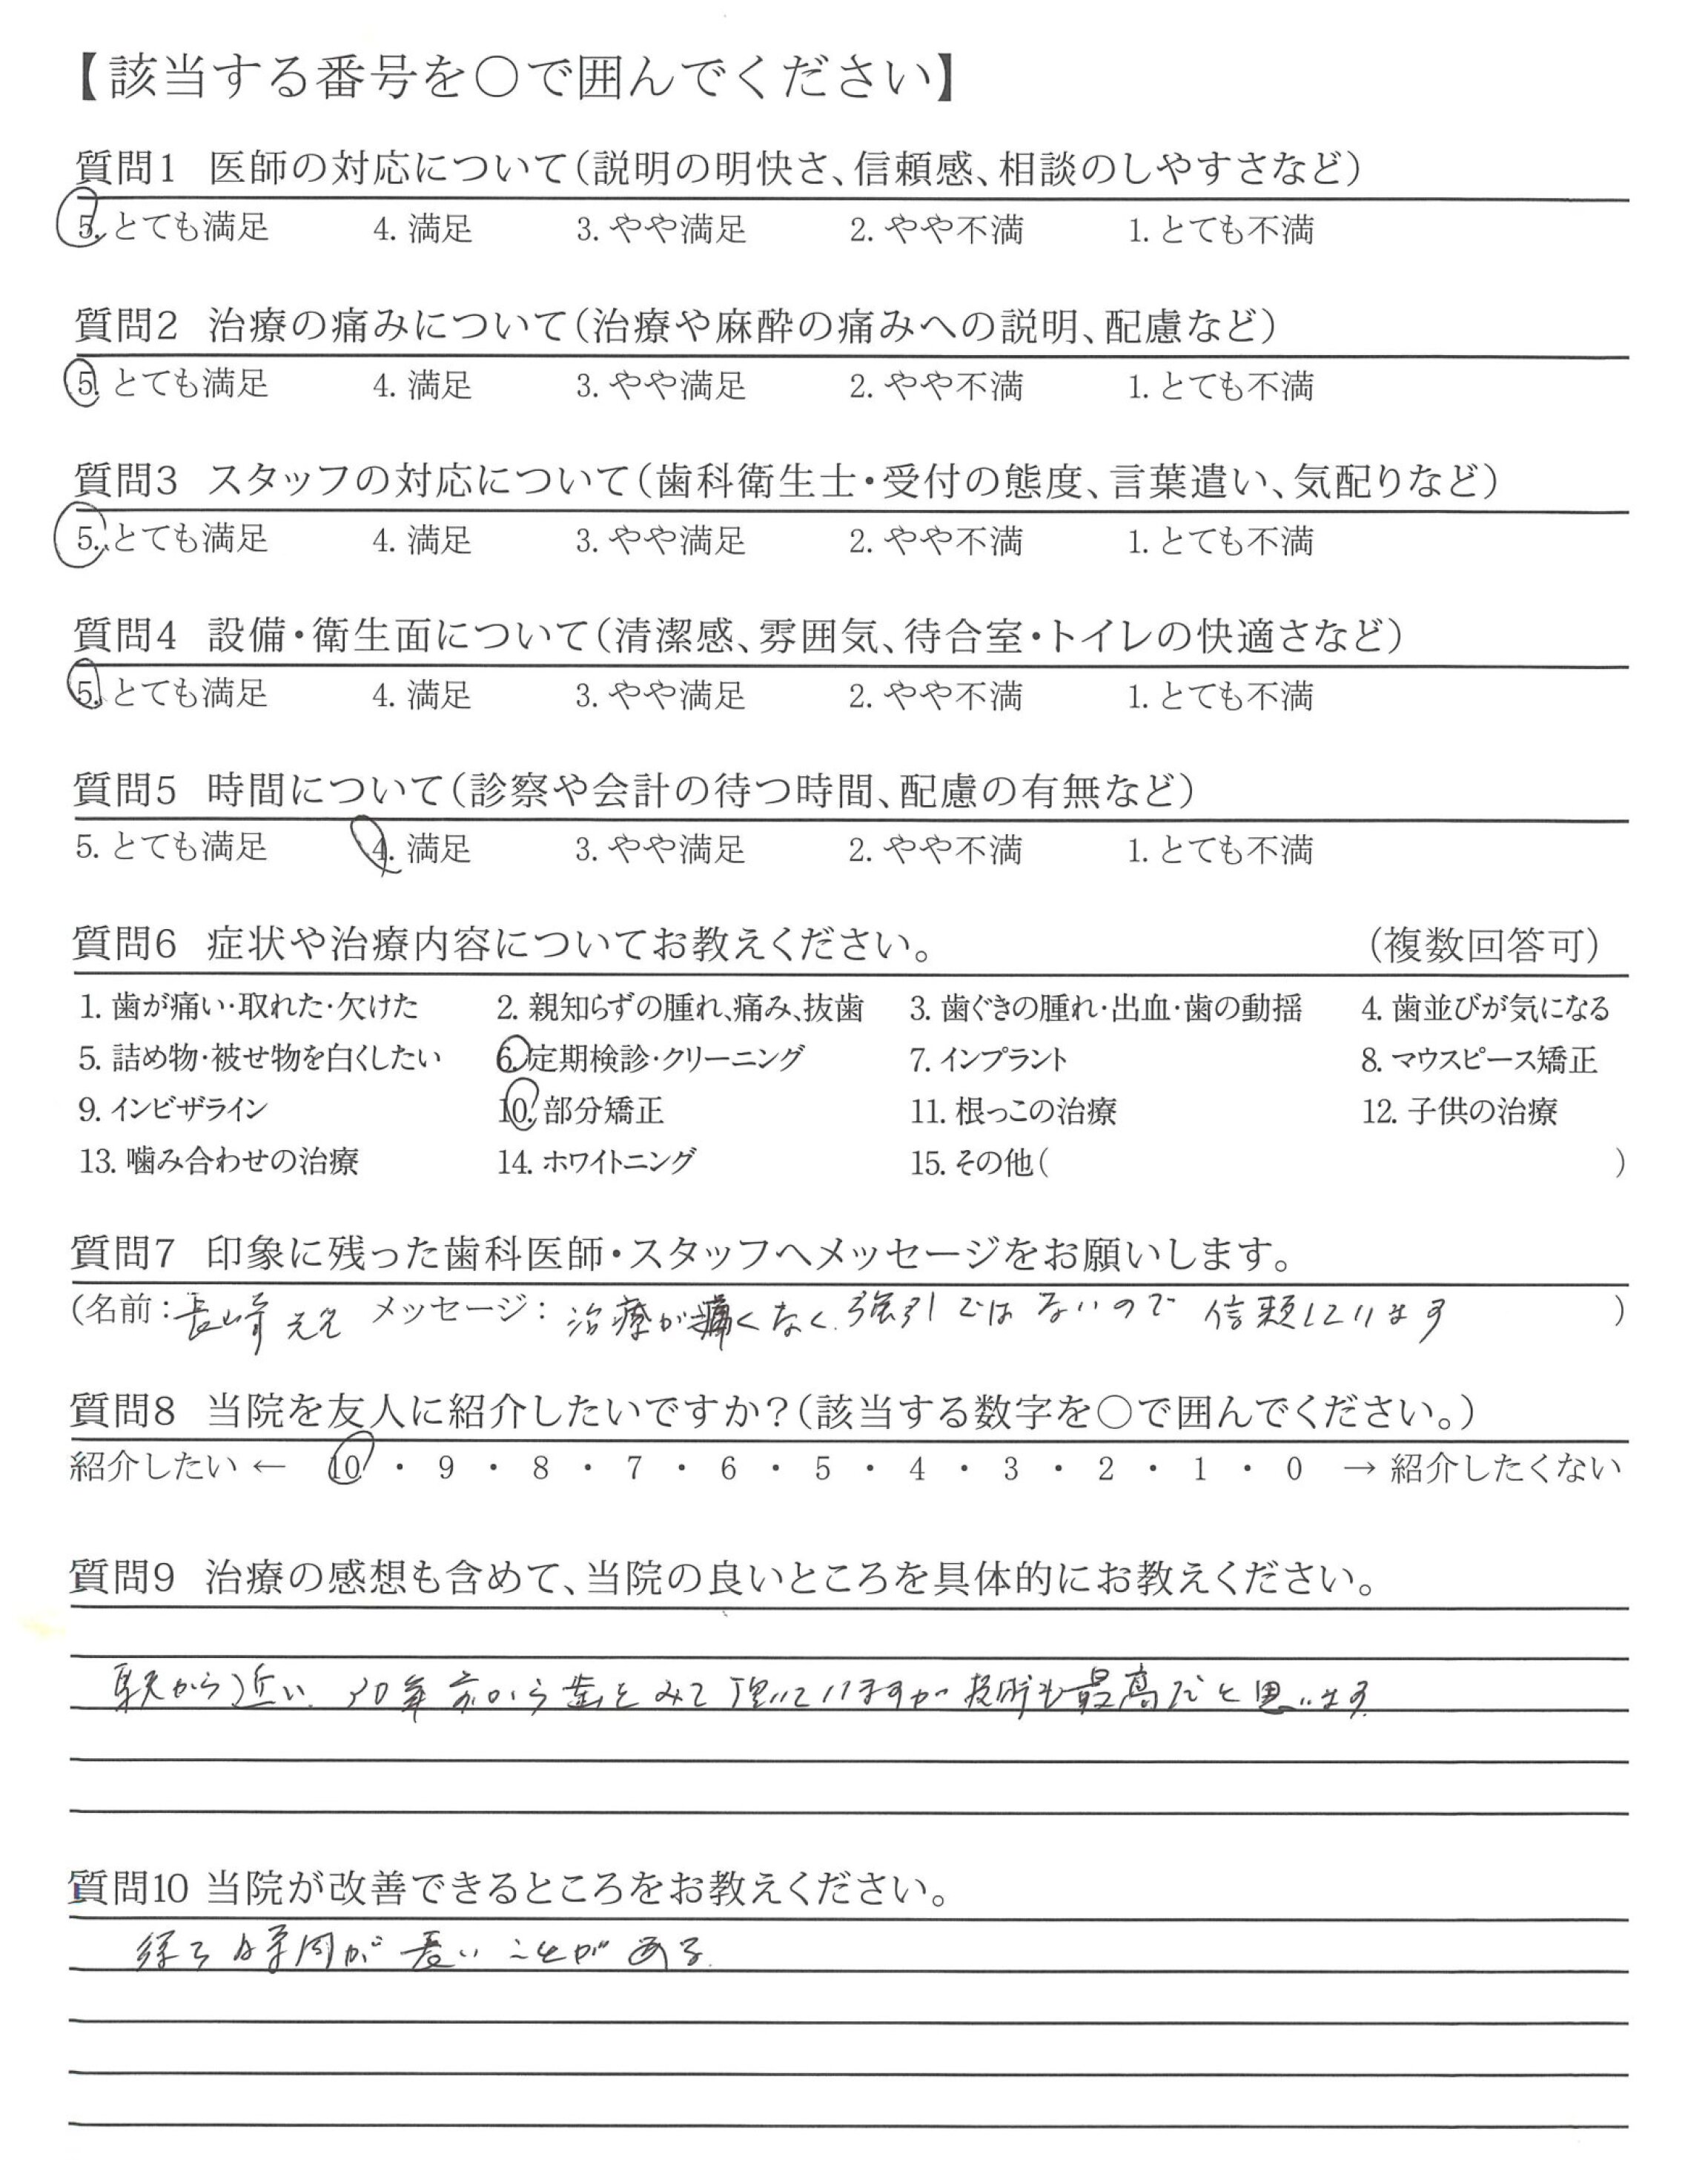 【該当する番号を○で囲んでください】
質問1 医師の対応について(説明の明快さ、信頼感、相談のしやすさなど)
5. とても満足 4. 満足 3. やや満足 2. やや不満 1. とても不満
質問2 治療の痛みについて(治療や麻酔の痛みへの説明、配慮など)
5. とても満足 4. 満足 3. やや満足 2. やや不満 1. とても不満
質問3 スタッフの対応について(歯科衛生士・受付の態度、言葉遣い、気配りなど)
5. とても満足 4. 満足 3. やや満足 2. やや不満 1. とても不満
質問4 設備・衛生面について(清潔感、雰囲気、待合室・トイレの快適さなど)
5. とても満足 4. 満足 3. やや満足 2. やや不満 1. とても不満
質問5 時間について(診察や会計の待つ時間、配慮の有無など)
5. とても満足 4. 満足 3. やや満足 2. やや不満 1. とても不満
質問6 症状や治療内容についてお教えください。 (複数回答可)
1. 歯が痛い・取れた・欠けた 2. 親知らずの腫れ、痛み、抜歯 3. 歯ぐきの腫れ・出血・歯の動揺 4. 歯並びが気になる
5. 詰め物・被せ物を白くしたい 6. 定期検診・クリーニング 7. インプラント 8. マウスピース矯正
9. インビザライン 10. 部分矯正 11. 根っこの治療 12. 子供の治療
13. 噛み合わせの治療 14. ホワイトニング 15. その他( )
質問7 印象に残った歯科医師・スタッフへメッセージをお願いします。
(名前:長崎 メッセージ: 治療が痛くなく、強引ではないので 信頼しています )
質問8 当院を友人に紹介したいですか?(該当する数字を○で囲んでください。)
紹介したい ← 10 ・ 9 ・ 8 ・ 7 ・ 6 ・ 5 ・ 4 ・ 3 ・ 2 ・ 1 ・ 0 → 紹介したくない
質問9 治療の感想も含めて、当院の良いところを具体的にお教えください。
駅から近い 年前から歯をみて頂いていますが 技術も最高だと思います
質問10 当院が改善できるところをお教えください。
待ち時間が長いことがある